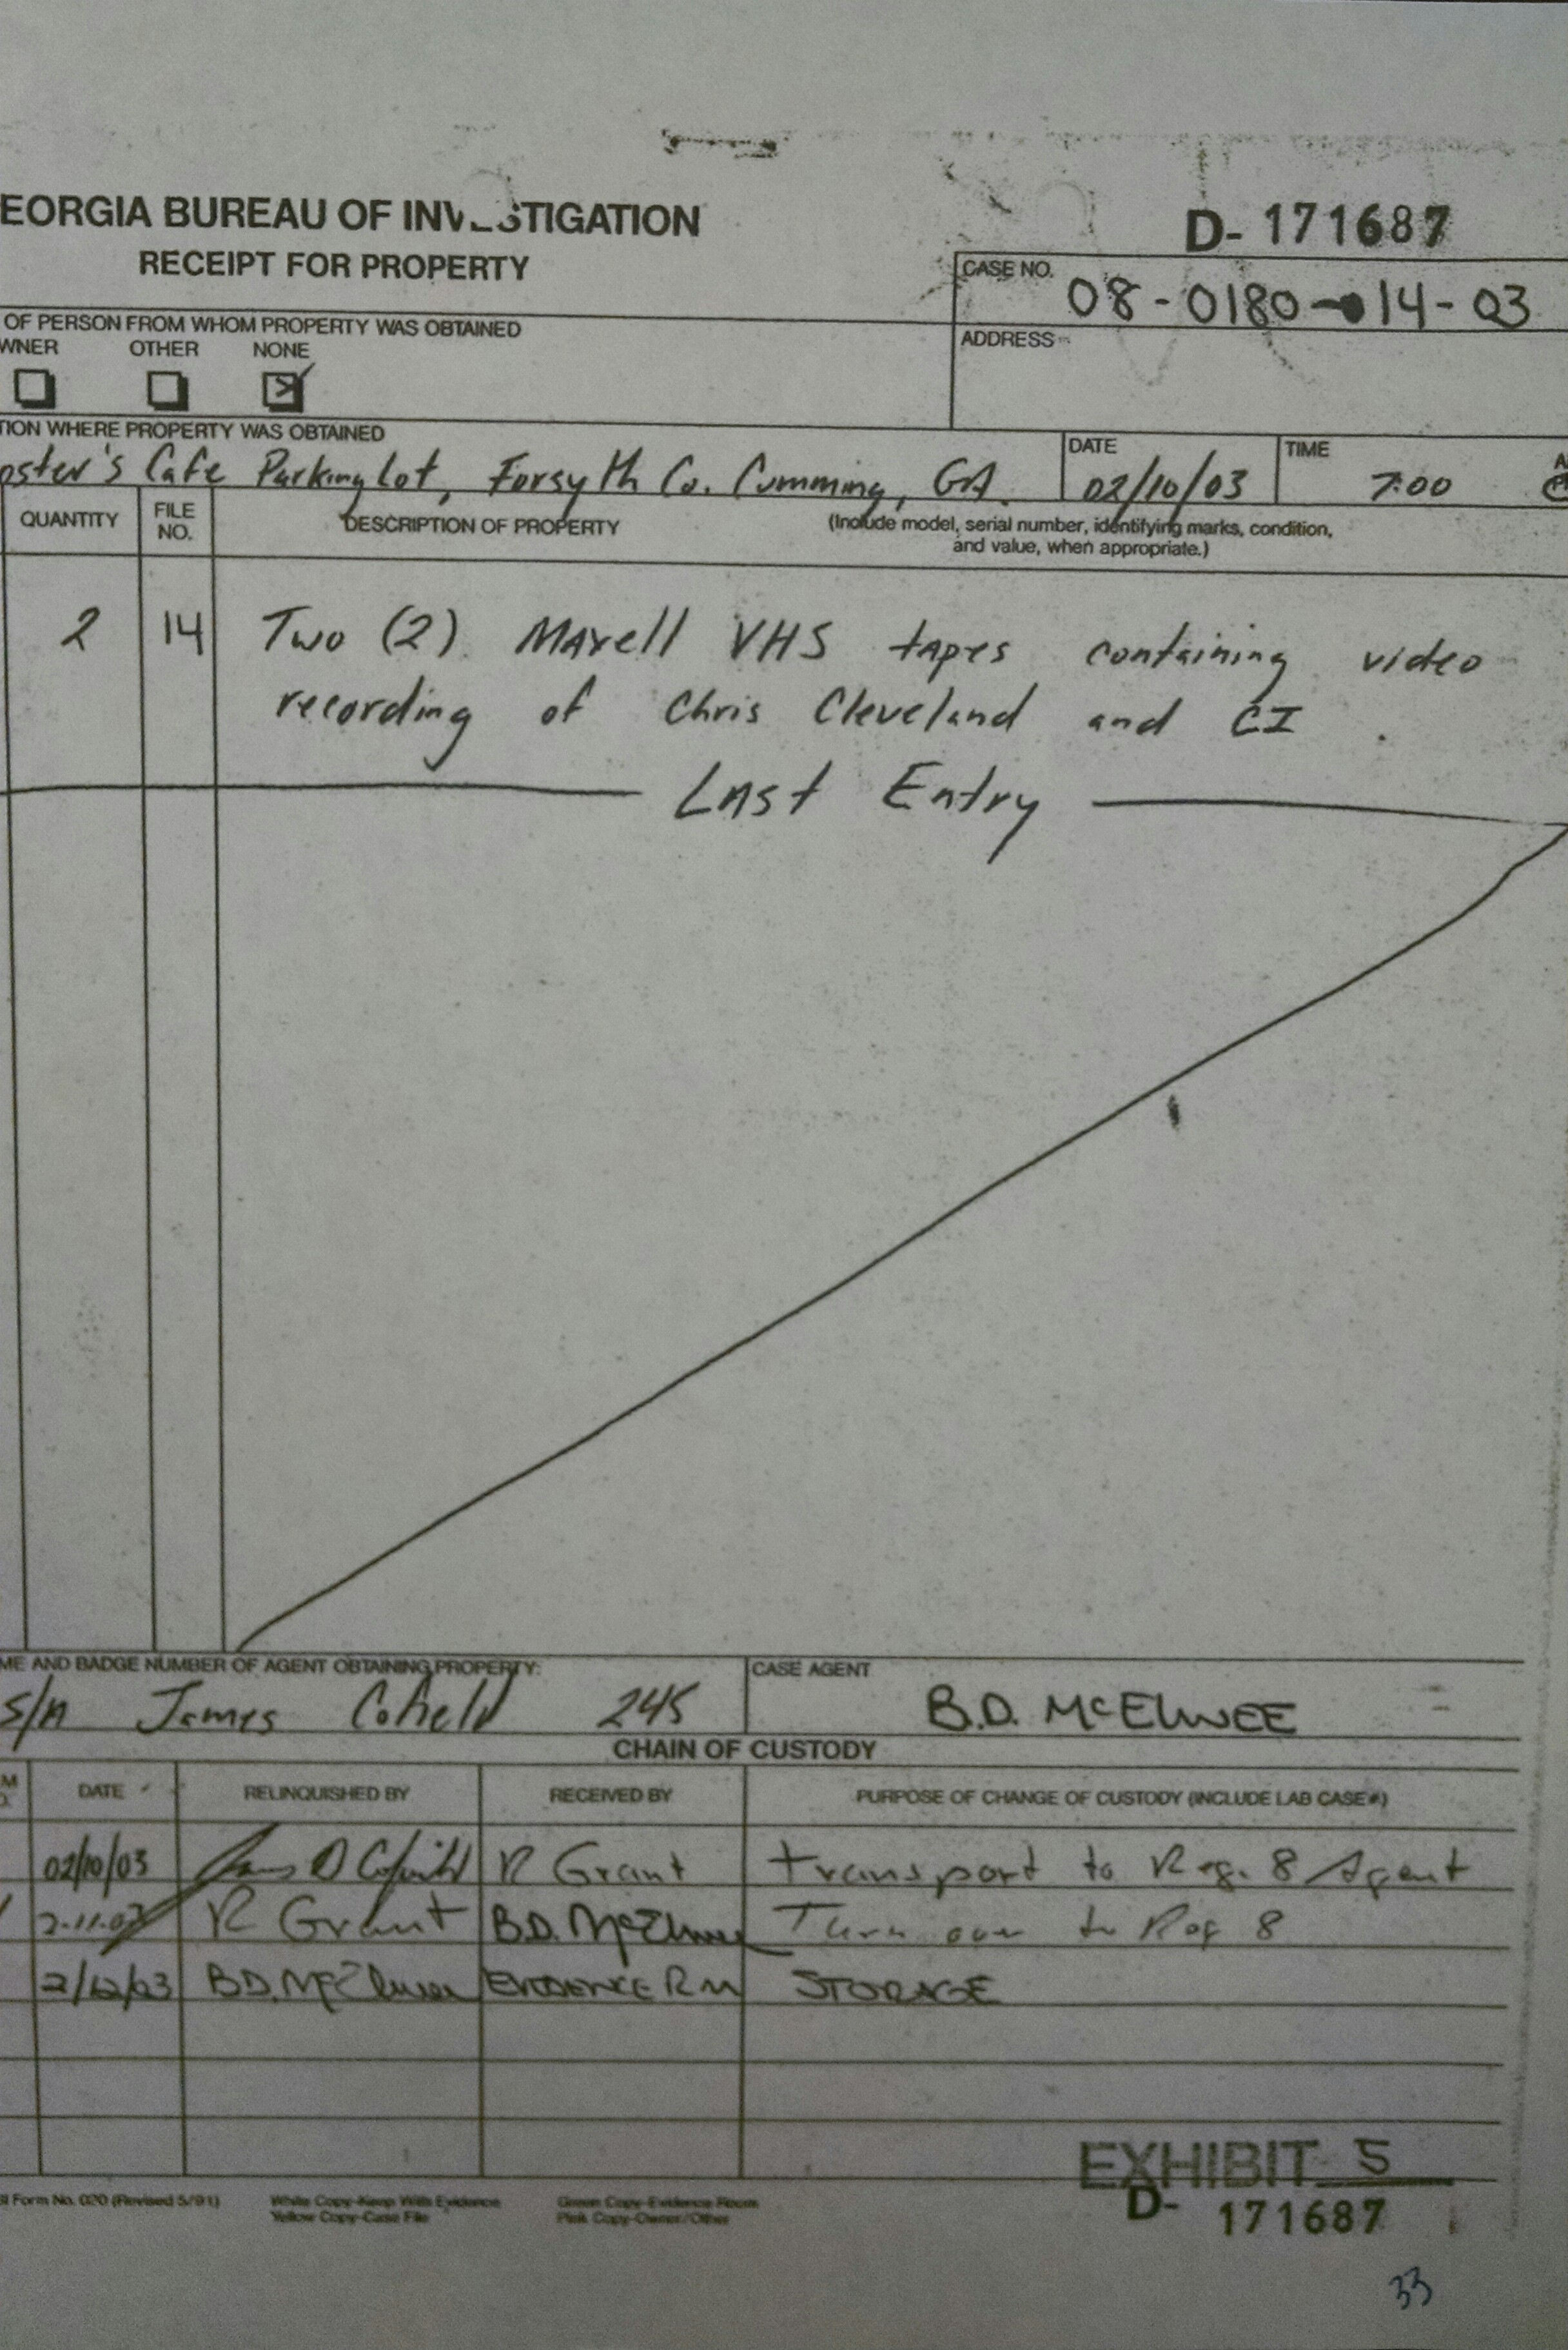 EORGIA BUREAU OF INVESTIGATION
RECEIPT FOR PROPERTY
D- 171687
CASE NO.
08-0180- 14-03
OF PERSON FROM WHOM PROPERTY WAS OBTAINED
WNER OTHER NONE
ADDRESS
TION WHERE PROPERTY WAS OBTAINED
oster's Cafe Parking Lot, Forsyth Co. Cumming, GA.
DATE
02/10/03
TIME
7:00
QUANTITY
FILE NO.
DESCRIPTION OF PROPERTY
(Include model, serial number, identifying marks, condition,
and value, when appropriate.)
2 14 Two (2) Maxell VHS tapes containing video
recording of Chris Cleveland and CI.
Last Entry
ME AND BADGE NUMBER OF AGENT OBTAINING PROPERTY:
S/A James Cofield 245
CASE AGENT
B.D. McELWEE
CHAIN OF CUSTODY
DATE RELINQUISHED BY RECEIVED BY PURPOSE OF CHANGE OF CUSTODY (INCLUDE LAB CASE#)
02/10/03 James D Cofield R Grant transport to Reg. 8 Agent
2-11-03 R Grant B.D. McElwee Turn over to Reg 8
2/12/03 B.D. McElwee EVIDENCE RM STORAGE
BI Form No. 020 (Revised 5/91)
White Copy-Keep With Evidence
Yellow Copy-Case File
Green Copy-Evidence Room
Pink Copy-Owner/Other
EXHIBIT 5
D- 171687
33